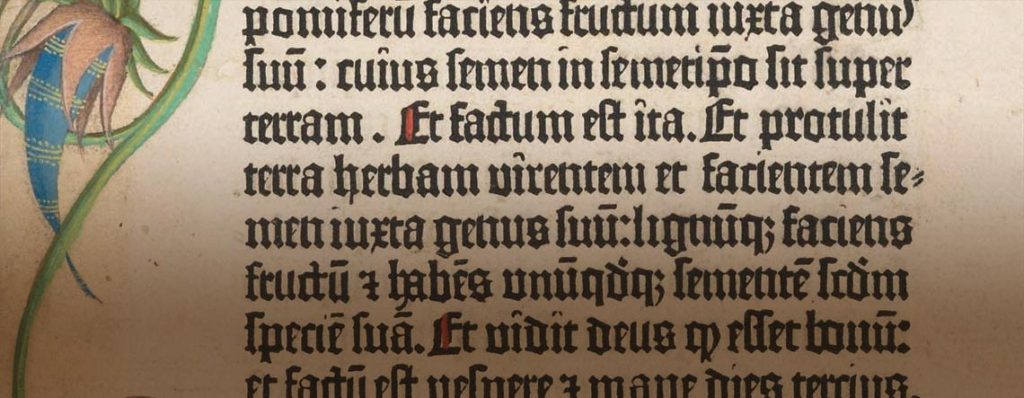 pomiferū faciens fructum iuxta genꝰ
suū : cuius semen in semetip̄o sit super
terram . Et factum est ita. Et protulit
terra herbam virentem et facientem se⸗
men iuxta genus suū: lignūqꝫ faciens
fructū ⁊ habēs vnūqd̄qꝫ sementē scd̄m
speciē suā. Et vidit deus ꝙ esset bonū:
et factū est vespere ⁊ mane dies tercius.